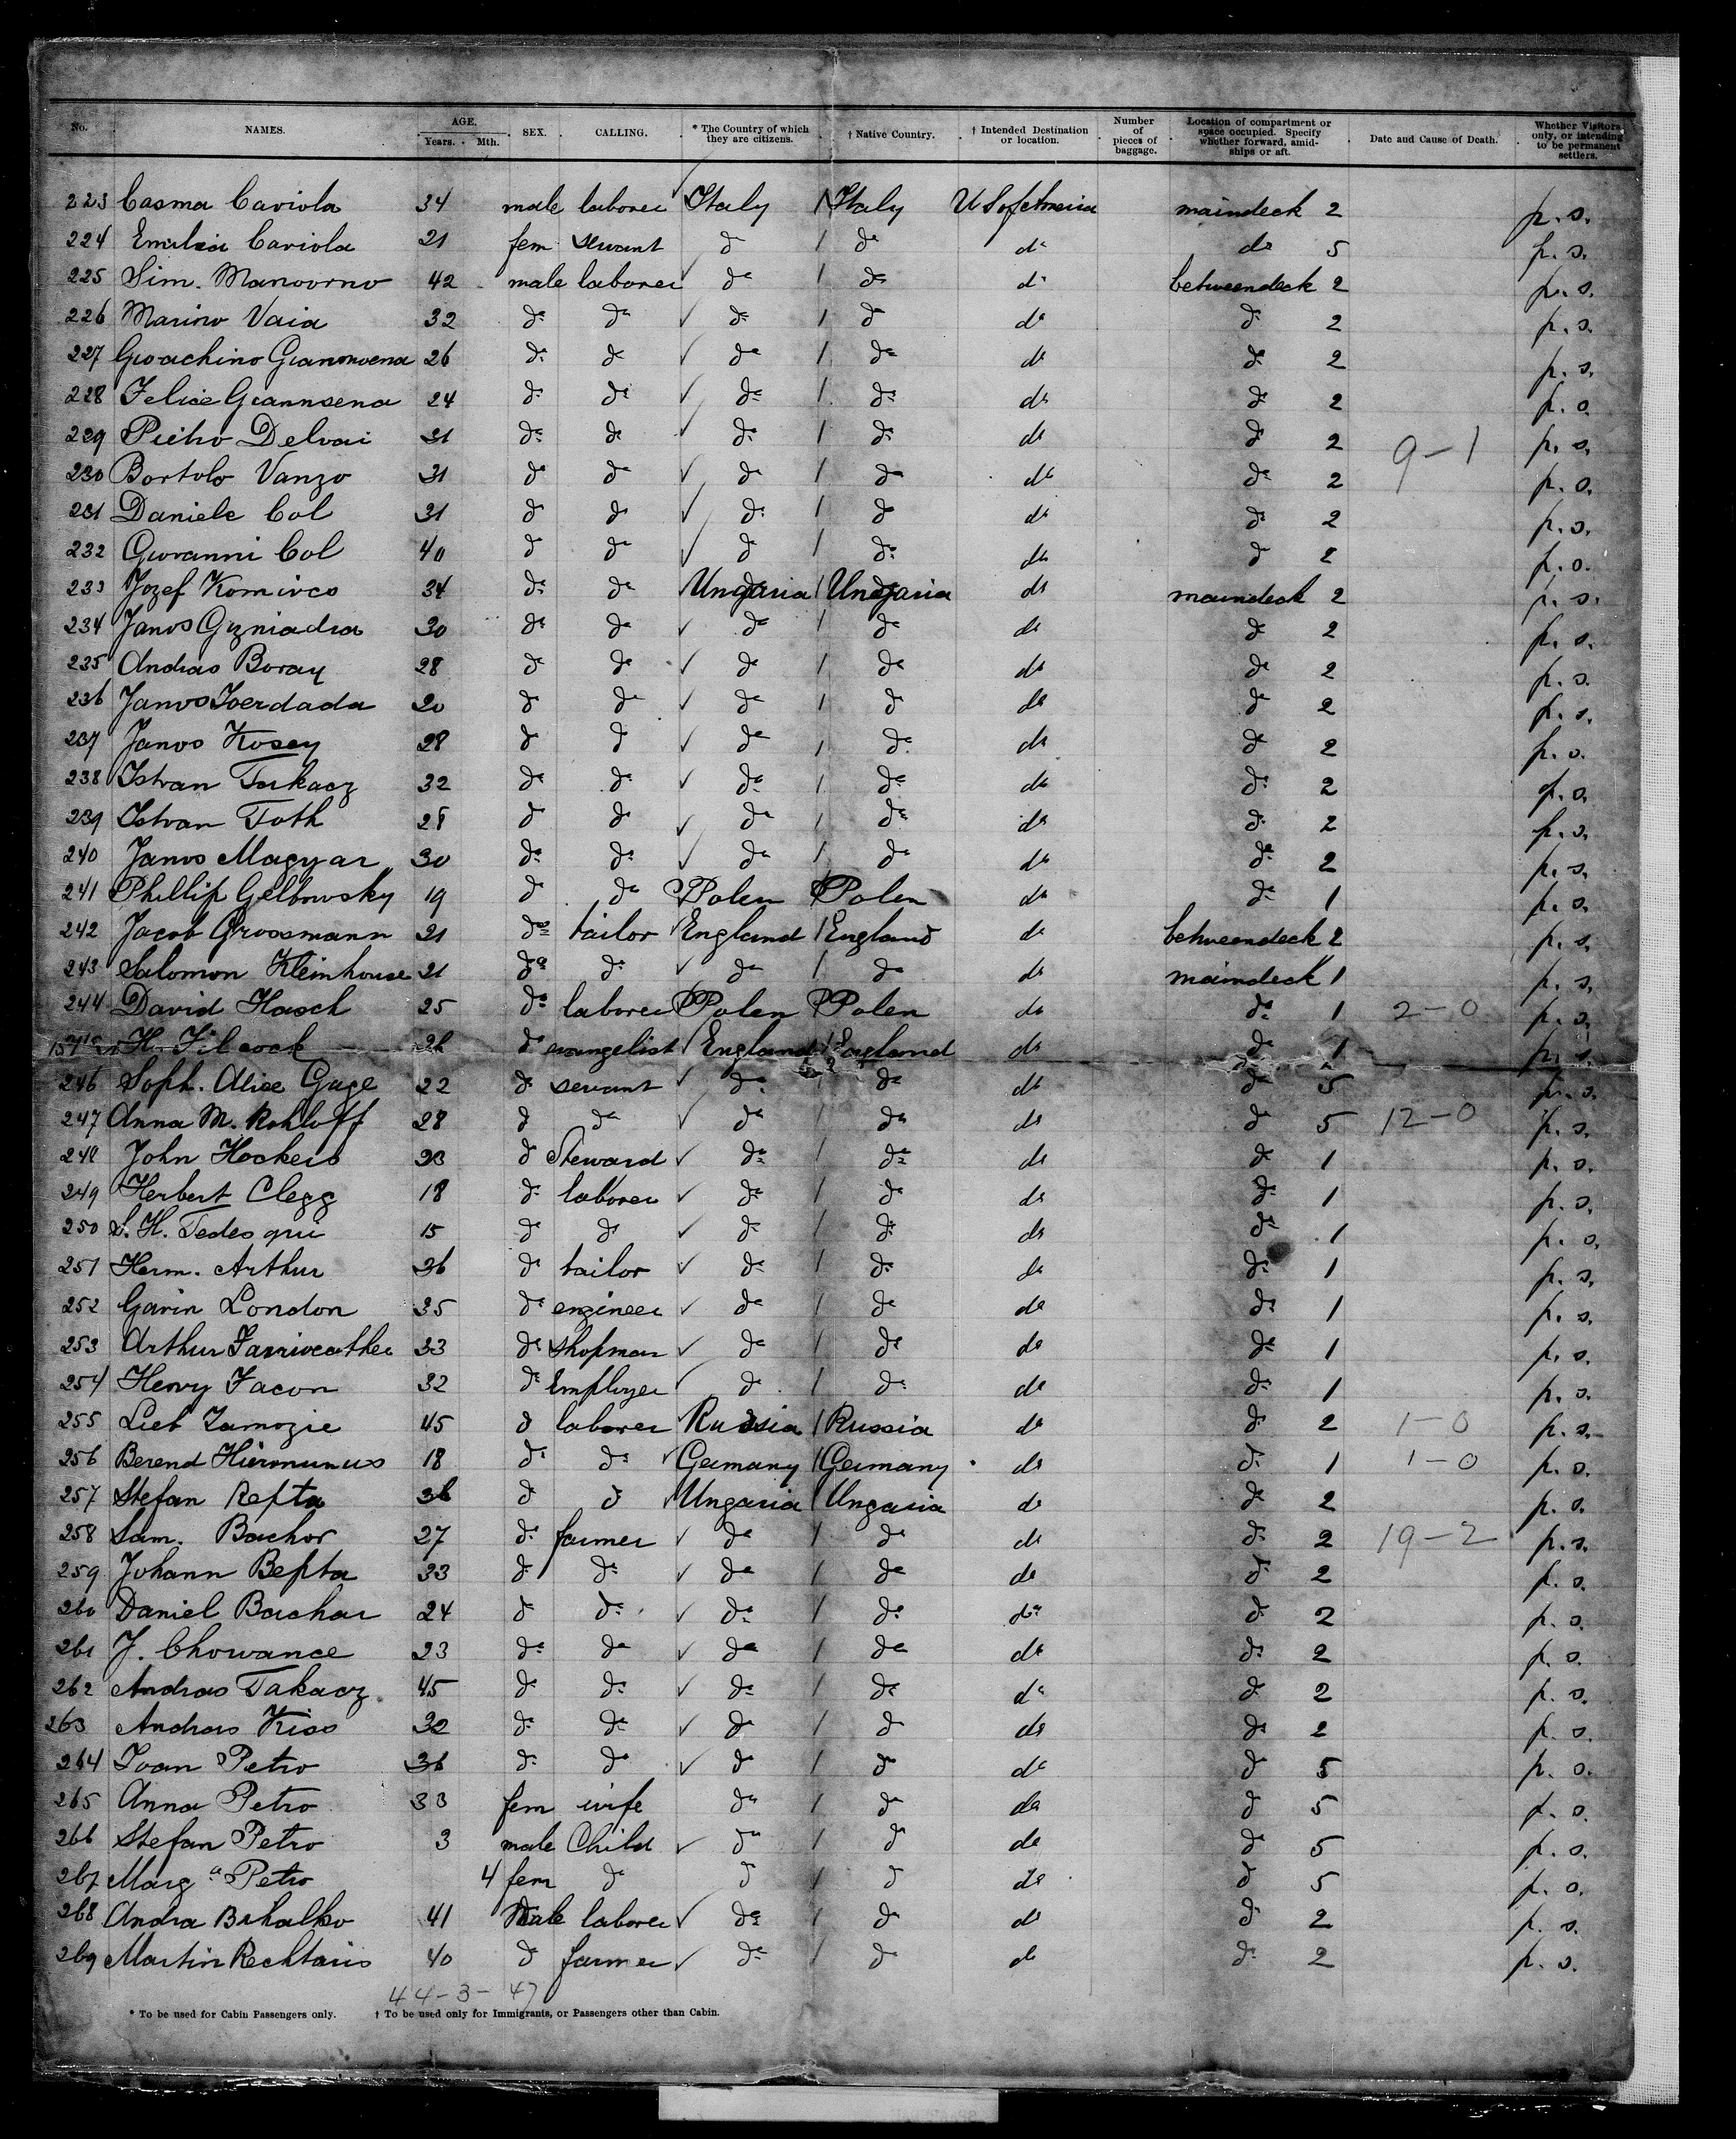 No. NAMES. AGE. Years. Mth. SEX. CALLING. * The Country of which they are citizens. † Native Country. † Intended Destination or location. Number of pieces of baggage. Location of compartment or space occupied. Specify whether forward, amidships or aft. Date and Cause of Death. Whether Visitors only, or intending to be permanent settlers.
223 Casma Caviola 34 male laborer Italy Italy U S of America maindeck 2 p. s.
224 Emilia Caviola 21 fem servant do do do do 5 p. s.
225 Sim. Manovrno 42 male laborer do do do betweendeck 2 p. s.
226 Marino Vaia 32 do do do do do do 2 p. s.
227 Gioachino 26 do do do do do do 2 p. s.
228 Felice Giannsena 24 do do do do do do 2 p. s.
229 Pietro Delvai 31 do do do do do do 2 9-1 p. s.
230 Bortolo Vanzo 31 do do do do do do 2 p. s.
231 Daniele Col 31 do do do do do do 2 p. s.
232 Giovanni Col 40 do do do do do do 2 p. s.
233 Jozef Komives 34 do do Ungaria Ungaria do maindeck 2 p. s.
234 Janos Gzniadra 30 do do do do do do 2 p. s.
235 Andras Boray 28 do do do do do do 2 p. s.
236 Janos 20 do do do do do do 2 p. s.
237 Janos Kosey 28 do do do do do do 2 p. s.
238 Istvan Takacz 32 do do do do do do 2 p. s.
239 Istvan Toth 28 do do do do do do 2 p. s.
240 Janos Magyar 30 do do do do do do 2 p. s.
241 Phillip Gelbowsky 19 do do Polen Polen do do 1 p. s.
242 Jacob Grossmann 21 do tailor England England do betweendeck 2 p. s.
243 Salomon Kleinhouse 21 do do do do do maindeck 1 p. s.
244 David Hasch 25 do laborer Polen Polen do do 1 2-0 p. s.
H. Filcock 26 do evangelist England England do do 1 p. s.
246 Soph. Alice Gage 22 do servant do do do do 5 p. s.
247 Anna M. Rohloff 28 do do do do do do 5 12-0 p. s.
248 John Hockeis 23 do Steward do do do do 1 p. s.
249 Herbert Clegg 18 do laborer do do do do 1 p. s.
250 S. H. Tedesqui 15 do do do do do do 1 p. s.
251 Herm. Arthur 36 do tailor do do do do 1 p. s.
252 Gavin London 35 do engineer do do do do 1 p. s.
253 Arthur Farriweather 33 do shopman do do do do 1 p. s.
254 Henry Facon 32 do Employer do do do do 1 p. s.
255 Lieb Zamozie 45 do laborer Russia Russia do do 2 1-0 p. s.
256 Berend Hieronimus 18 do do Germany Germany do do 1 1-0 p. s.
257 Stefan Repta 36 do do Ungaria Ungaria do do 2 p. s.
258 Sam. Bachor 27 do farmer do do do do 2 19-2 p. s.
259 Johann Bepta 33 do do do do do do 2 p. s.
260 Daniel Bachar 24 do do do do do do 2 p. s.
261 J. Chowance 23 do do do do do do 2 p. s.
262 Andras Takacz 45 do do do do do do 2 p. s.
263 Andras Kiss 32 do do do do do do 2 p. s.
264 Ioan Petro 36 do do do do do do 5 p. s.
265 Anna Petro 33 fem wife do do do do 5 p. s.
266 Stefan Petro 3 male Child do do do do 5 p. s.
267 Marg a Petro 4 fem do do do do do 5 p. s.
268 Andra Bihalko 41 Male laborer do do do do 2 p. s.
269 Martin Rechtaris 40 do farmer do do do do 2 p. s.
44-3-47
* To be used for Cabin Passengers only. † To be used only for Immigrants, or Passengers other than Cabin.